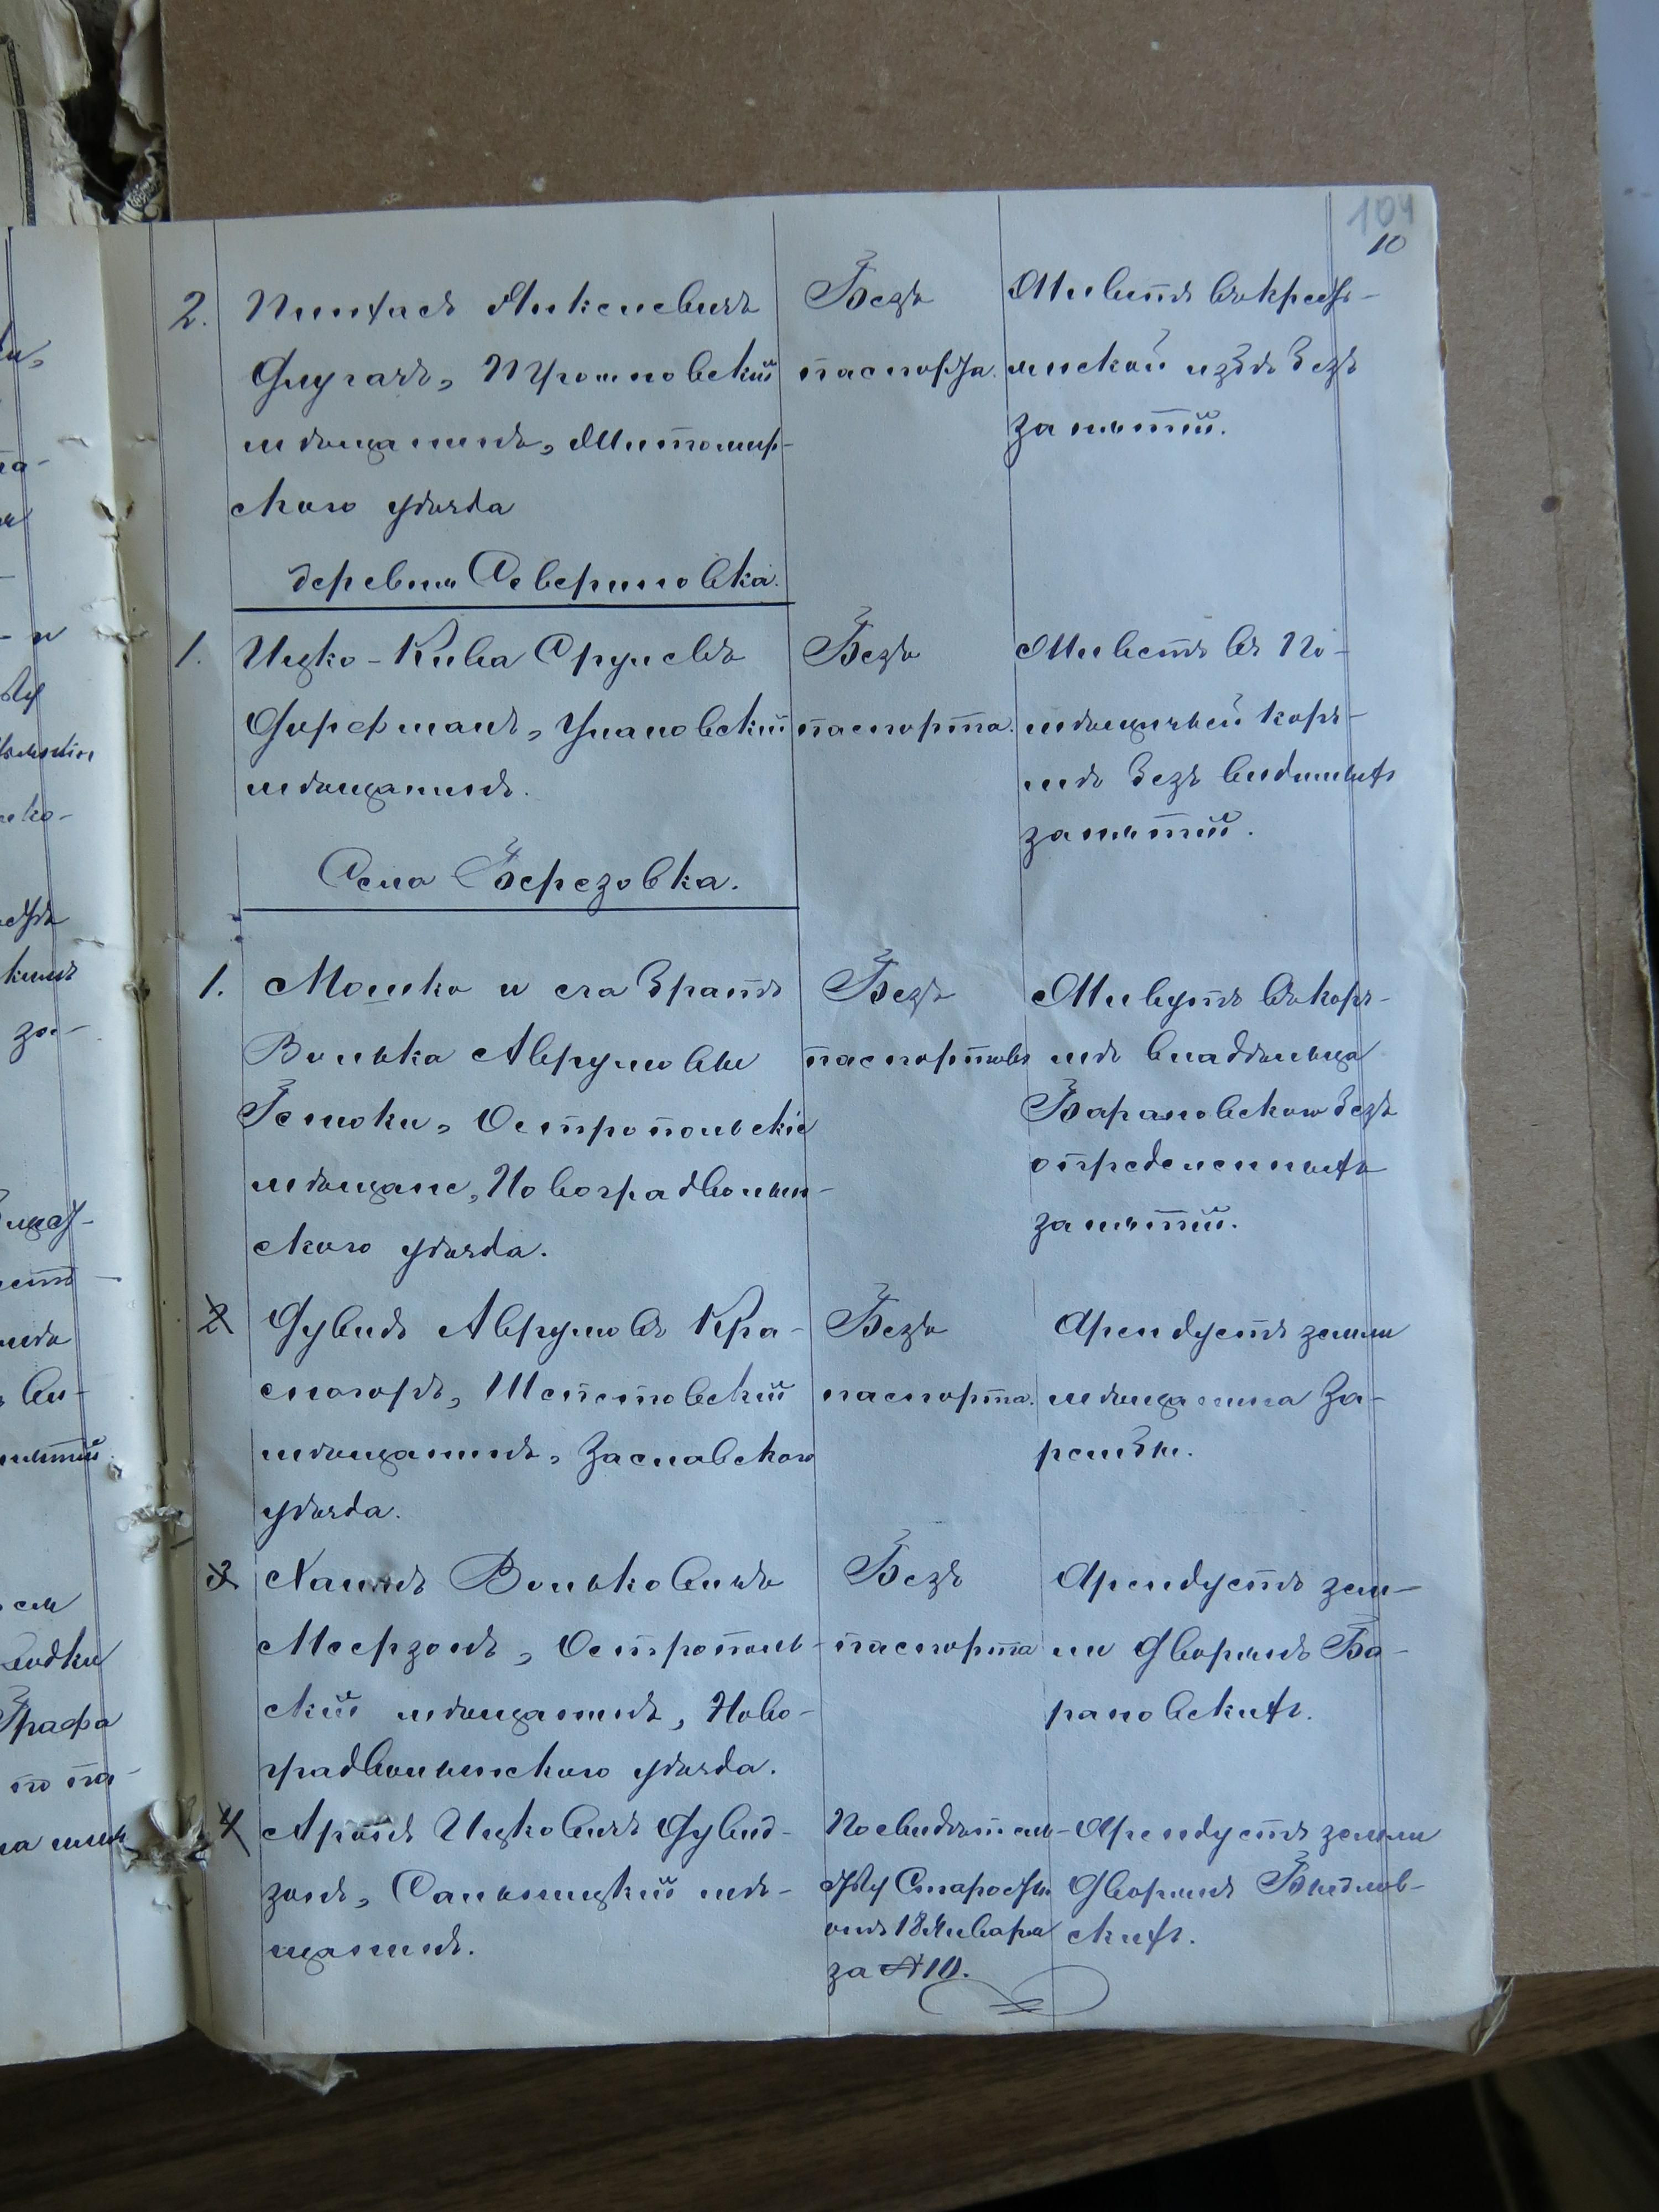 104
10
2. Пинхасъ Янкелевичъ
Длугачъ, Трояновскій
мѣщанинъ, Житомир-
скаго уѣзда
Безъ
паспорта.
Живетъ въ крест-
янской избѣ безъ
занятій.
деревня Севериновка.
1. Ицко-Кива Срулевъ
Дорфманъ, Улановскій
мѣщанинъ.
Безъ
паспорта.
Живетъ въ по-
мѣщичьей корч-
мѣ безъ видимыхъ
занятій.
Село Березовка.
1. Мошко и его братъ
Волько Аврумовы
Остропольскіе
мѣщане, Новоградволын-
скаго уѣзда.
Безъ
паспортовъ
Живутъ въ корч-
мѣ владѣльца
Барановского безъ
определенныхъ
занятій.
2 Дувидъ Аврумовъ Кра-
сногоръ, Шепетовскій
мѣщанинъ, Заславскаго
уѣзда.
Безъ
паспорта.
Арендуетъ земли
мѣщанина За-
рембы.
3 Хаимъ Вольковичъ
Меерзонъ, Острополь-
скій мѣщанинъ, Ново-
градволынскаго уѣзда.
Безъ
паспорта
Арендуетъ зем-
ли Дворянъ Ба-
рановскихъ.
4 Аронъ Ицковичъ Дувид-
зонъ, Сальницкій мѣ-
щанинъ.
По свидѣтель-
ству Старосты
отъ 18 Января
за № 10.
Арендуетъ земли
Дворянъ
скихъ.